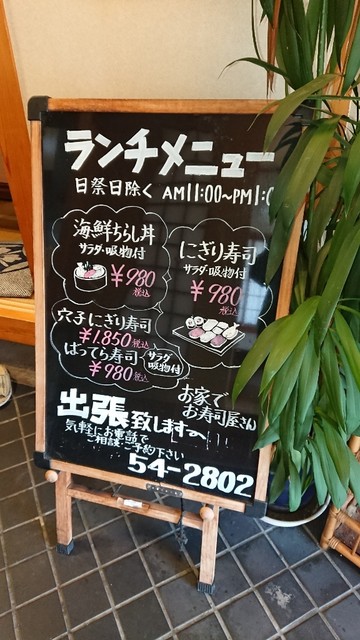 ランチメニュー
日祭日除く AM11:00~PM1:0
海鮮ちらし丼
サラダ・吸物付
¥980
税込
にぎり寿司
サラダ・吸物付
¥980
税込
穴子にぎり寿司
¥1,850税込
ばってら寿司
¥980税込
サラダ
吸物付
お家で
お寿司屋さん
出張致します〜!!!
気軽にお電話で
ご相談・ご予約下さい
54-2802